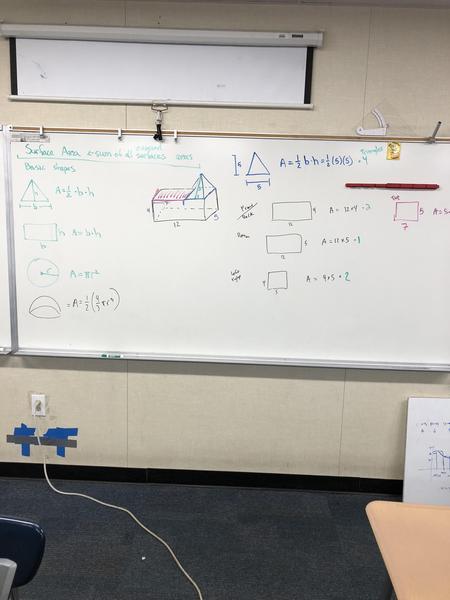 Surface Area ← sum of all exposed surfaces areas
Basic shapes
h
b
A = ½ · b · h
h
b
A = b · h
r
A = πr²
= A = ½ (4/3 πr³)
4
12
5
5
5
A = ½ b · h = ½ (5)(5) · 4
Triangles
Front
Back
4
12
A = 12 x 4 · 2
Bottom
5
12
A = 12 x 5 · 1
Left
right
4
5
A = 4 x 5 · 2
TOP
5
7